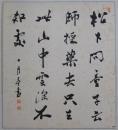 松下问童子言
師採藥去只在
此山中雲深不
知處